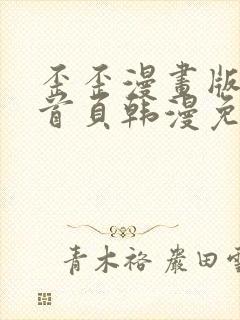 歪歪漫畫版
首頁韩漫免
青木裕 嚴田雪